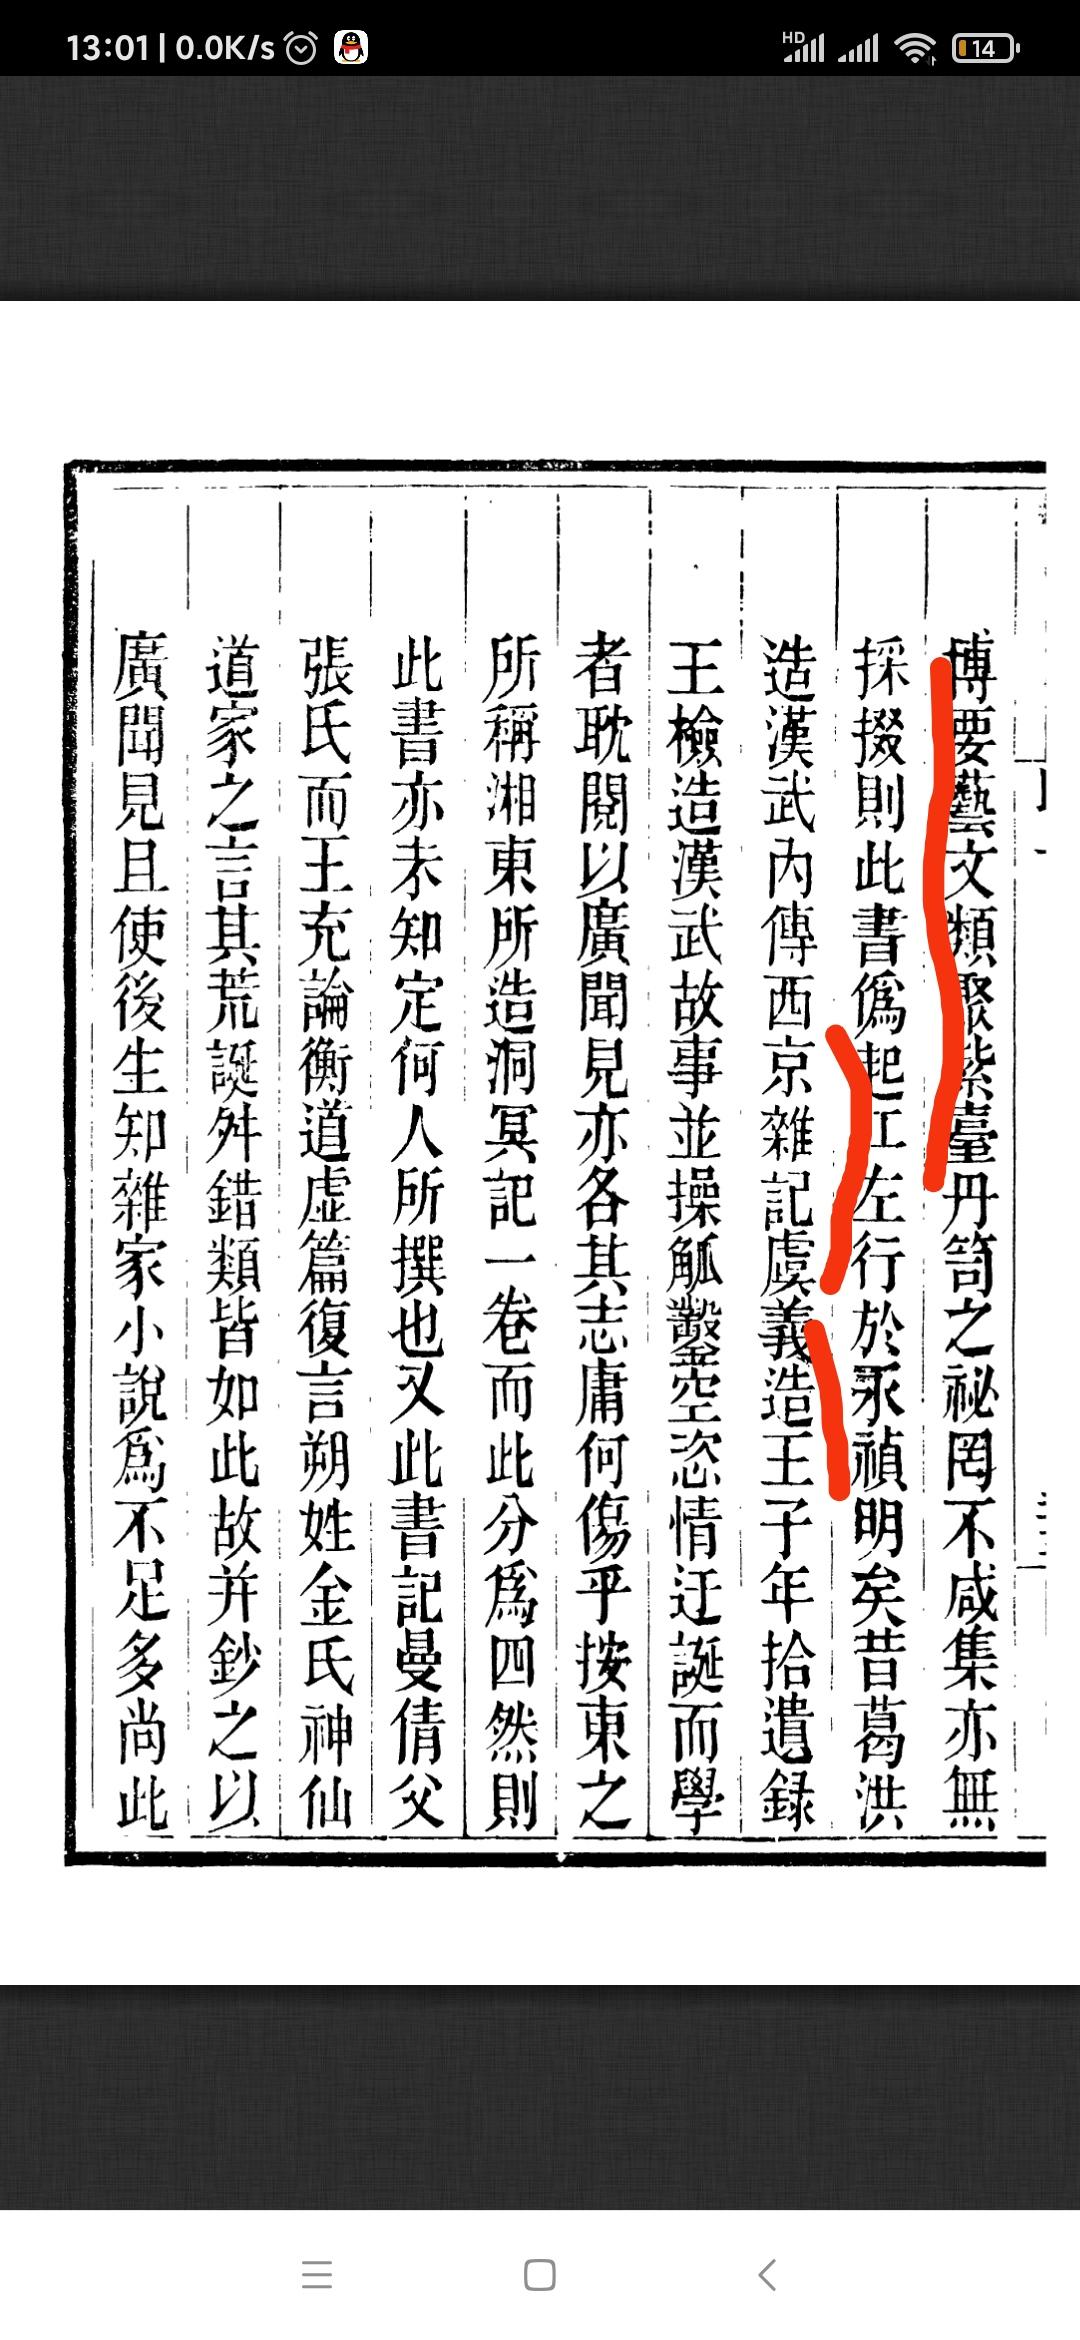 13:01 | 0.0K/s
HD
14
博要藝文類聚紫臺丹笥之祕罔不咸集亦無
採掇則此書僞起江左行於永禎明矣昔葛洪
造漢武內傳西京雜記虞義造王子年拾遺録
王檢造漢武故事並操觚鑿空恣情迂誕而學
者耽閱以廣聞見亦各其志庸何傷乎按東之
所稱湘東所造洞冥記一卷而此分爲四然則
此書亦未知定何人所撰也又此書記曼倩父
張氏而王充論衡道虛篇復言朔姓金氏神仙
道家之言其荒誕舛錯類皆如此故并鈔之以
廣聞見且使後生知雜家小說爲不足多尚此